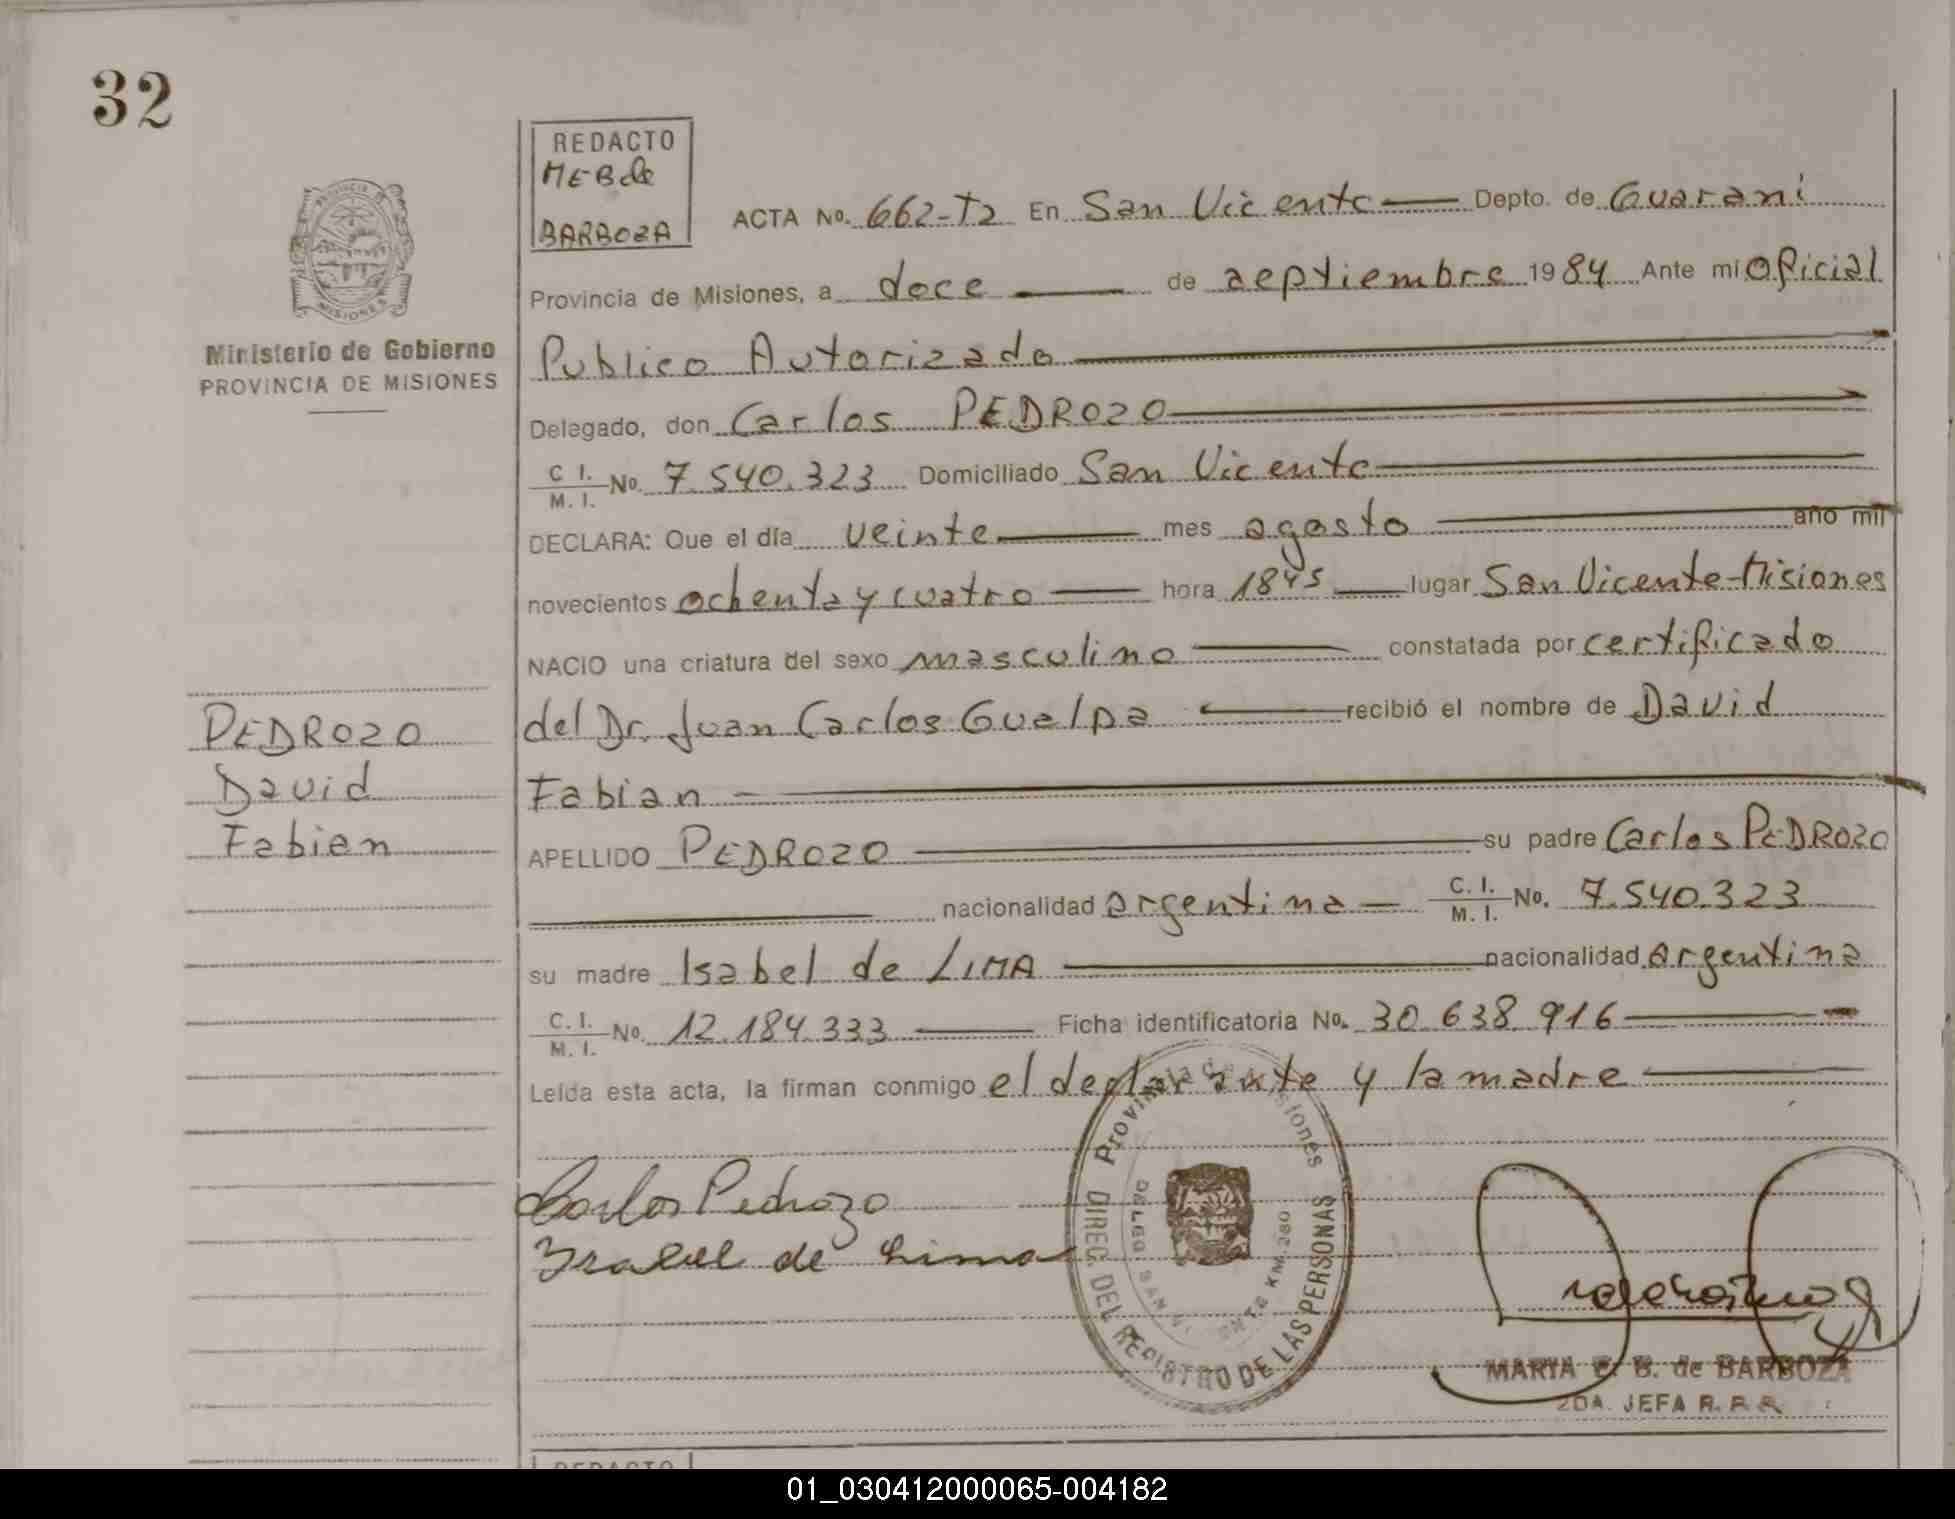 32
REDACTO
MEB de
BARBOZA
ACTA No. 662-T2 En San Vicente Depto. de Guarani
Provincia de Misiones, a doce de septiembre 1984 Ante mi Oficial
Publico Autorizado
Delegado, don Carlos PEDROZO
C. I. / M. I. No. 7.540.323 Domiciliado San Vicente
DECLARA: Que el día veinte mes agosto año mil
novecientos ochenta y cuatro hora 1845 lugar San Vicente-Misiones
NACIO una criatura del sexo masculino constatada por certificado
del Dr. Juan Carlos Guelpa recibió el nombre de David
Fabian
APELLIDO PEDROZO su padre Carlos PEDROZO
nacionalidad argentina C. I. / M. I. No. 7.540.323
su madre Isabel de LIMA nacionalidad argentina
C. I. / M. I. No. 12.184.333 Ficha identificatoria No. 30.638.916
Leída esta acta, la firman conmigo el declarante y la madre
Carlos Pedrozo
Isabel de Lima
PROVINCIA DE
MISIONES
Ministerio de Gobierno
PROVINCIA DE MISIONES
PEDROZO
David
Fabian
Provincia de Misiones
DIREC. DEL REGISTRO DE LAS PERSONAS
DELEG. SAN VICENTE KM. 280
MARIA E. B. de BARBOZA
2DA. JEFA R. P.
REDACTO
01_030412000065-004182